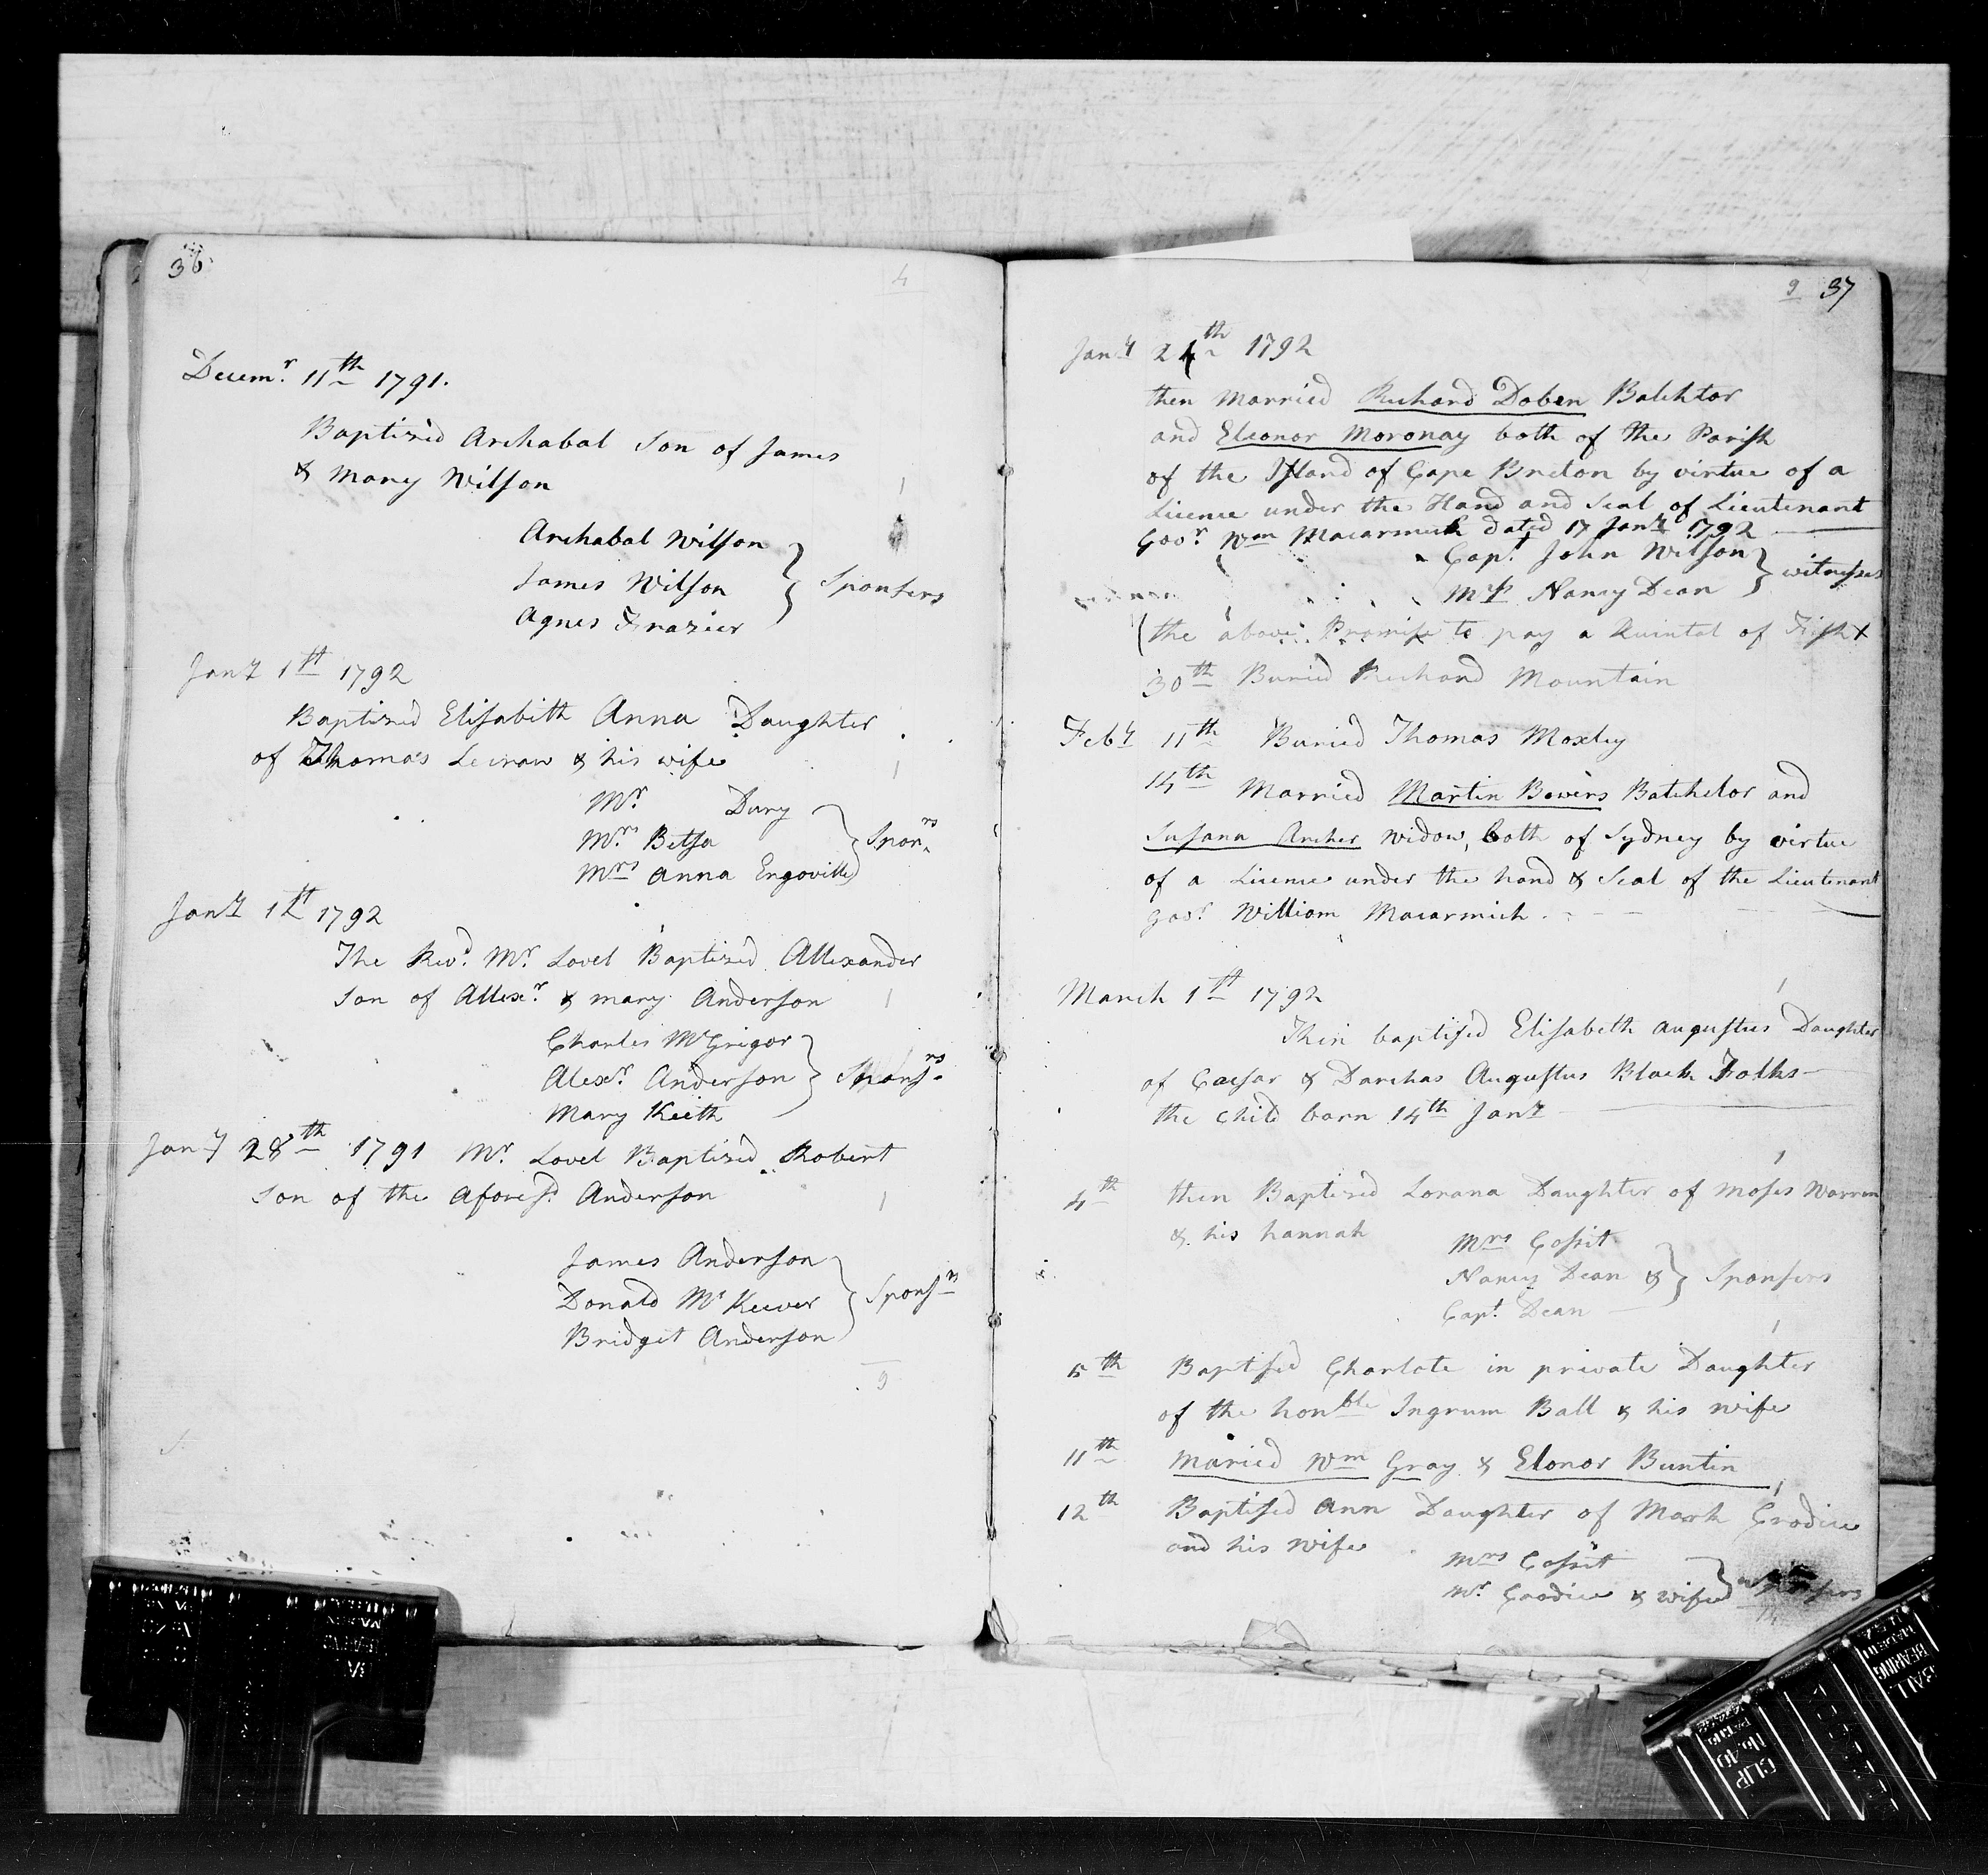 36
4
Decemr. 11th 1791.
Baptized Archabal Son of James
& Mary Wilson
Archabal Wilson
James Wilson } Sponsers
Agnes Frazier
Jany 1st 1792
Baptized Elisabeth Anna Daughter
of Thomas & his wife
Mr Dury
Mrs Betsa } Sponrs
Mrs Anna Engoville
Jany 1st 1792
The Revd. Mr Lovel Baptized Allexander
Son of Allexr. & mary Anderson
Charles McGrigor
Alexr. Anderson }
Mary Keith
Jany 28th 1791 Mr Lovel Baptized Robert
Son of the Aforesd. Anderson
James Anderson
Donald Mc Keever } Sponsrs
Bridget Anderson
9
9 37
Jany 24th 1792
then Married Richard Doben
and Eleonor Moronay both of the Parish
of the Island of Cape Breton by virtue of a
Licence under the Hand and Seal of Lieutenant
Govr. Wm Macarmick dated 17 Jany 1792
Capt. John Wilson } witnesses
Nancy Dean
(the above Promise to pay a Quintal of Fish
30th Buried Richard Mountain
Feby 11th Buried Thomas Moxley
14th Married Martin Bowers Batchelor and
Susana Archer widow, both of Sydney by virtue
of a Licence under the hand & Seal of the Lieutenant
govr William Macarmick.
March 1st 1792
Then baptised Elisabeth Augustus Daughter
of Caesar & Darchas Augustus Black Folks
the Child born 14th Jany
4th then Baptized Lorana Daughter of Moses Warren
& his hannah
Mrs Cossit
Nancy Dean & } Sponsers
Capt. Dean
5th Baptised Charlote in private Daughter
of the honble Ingrum Ball & his wife
11th Maried Wm Gray & Elonor Buntin
12th Baptised Ann Daughter of Mark
and his Wife
Mrs Cossit
Mr & wife }
BALL
BEARING
CLIP
No.40